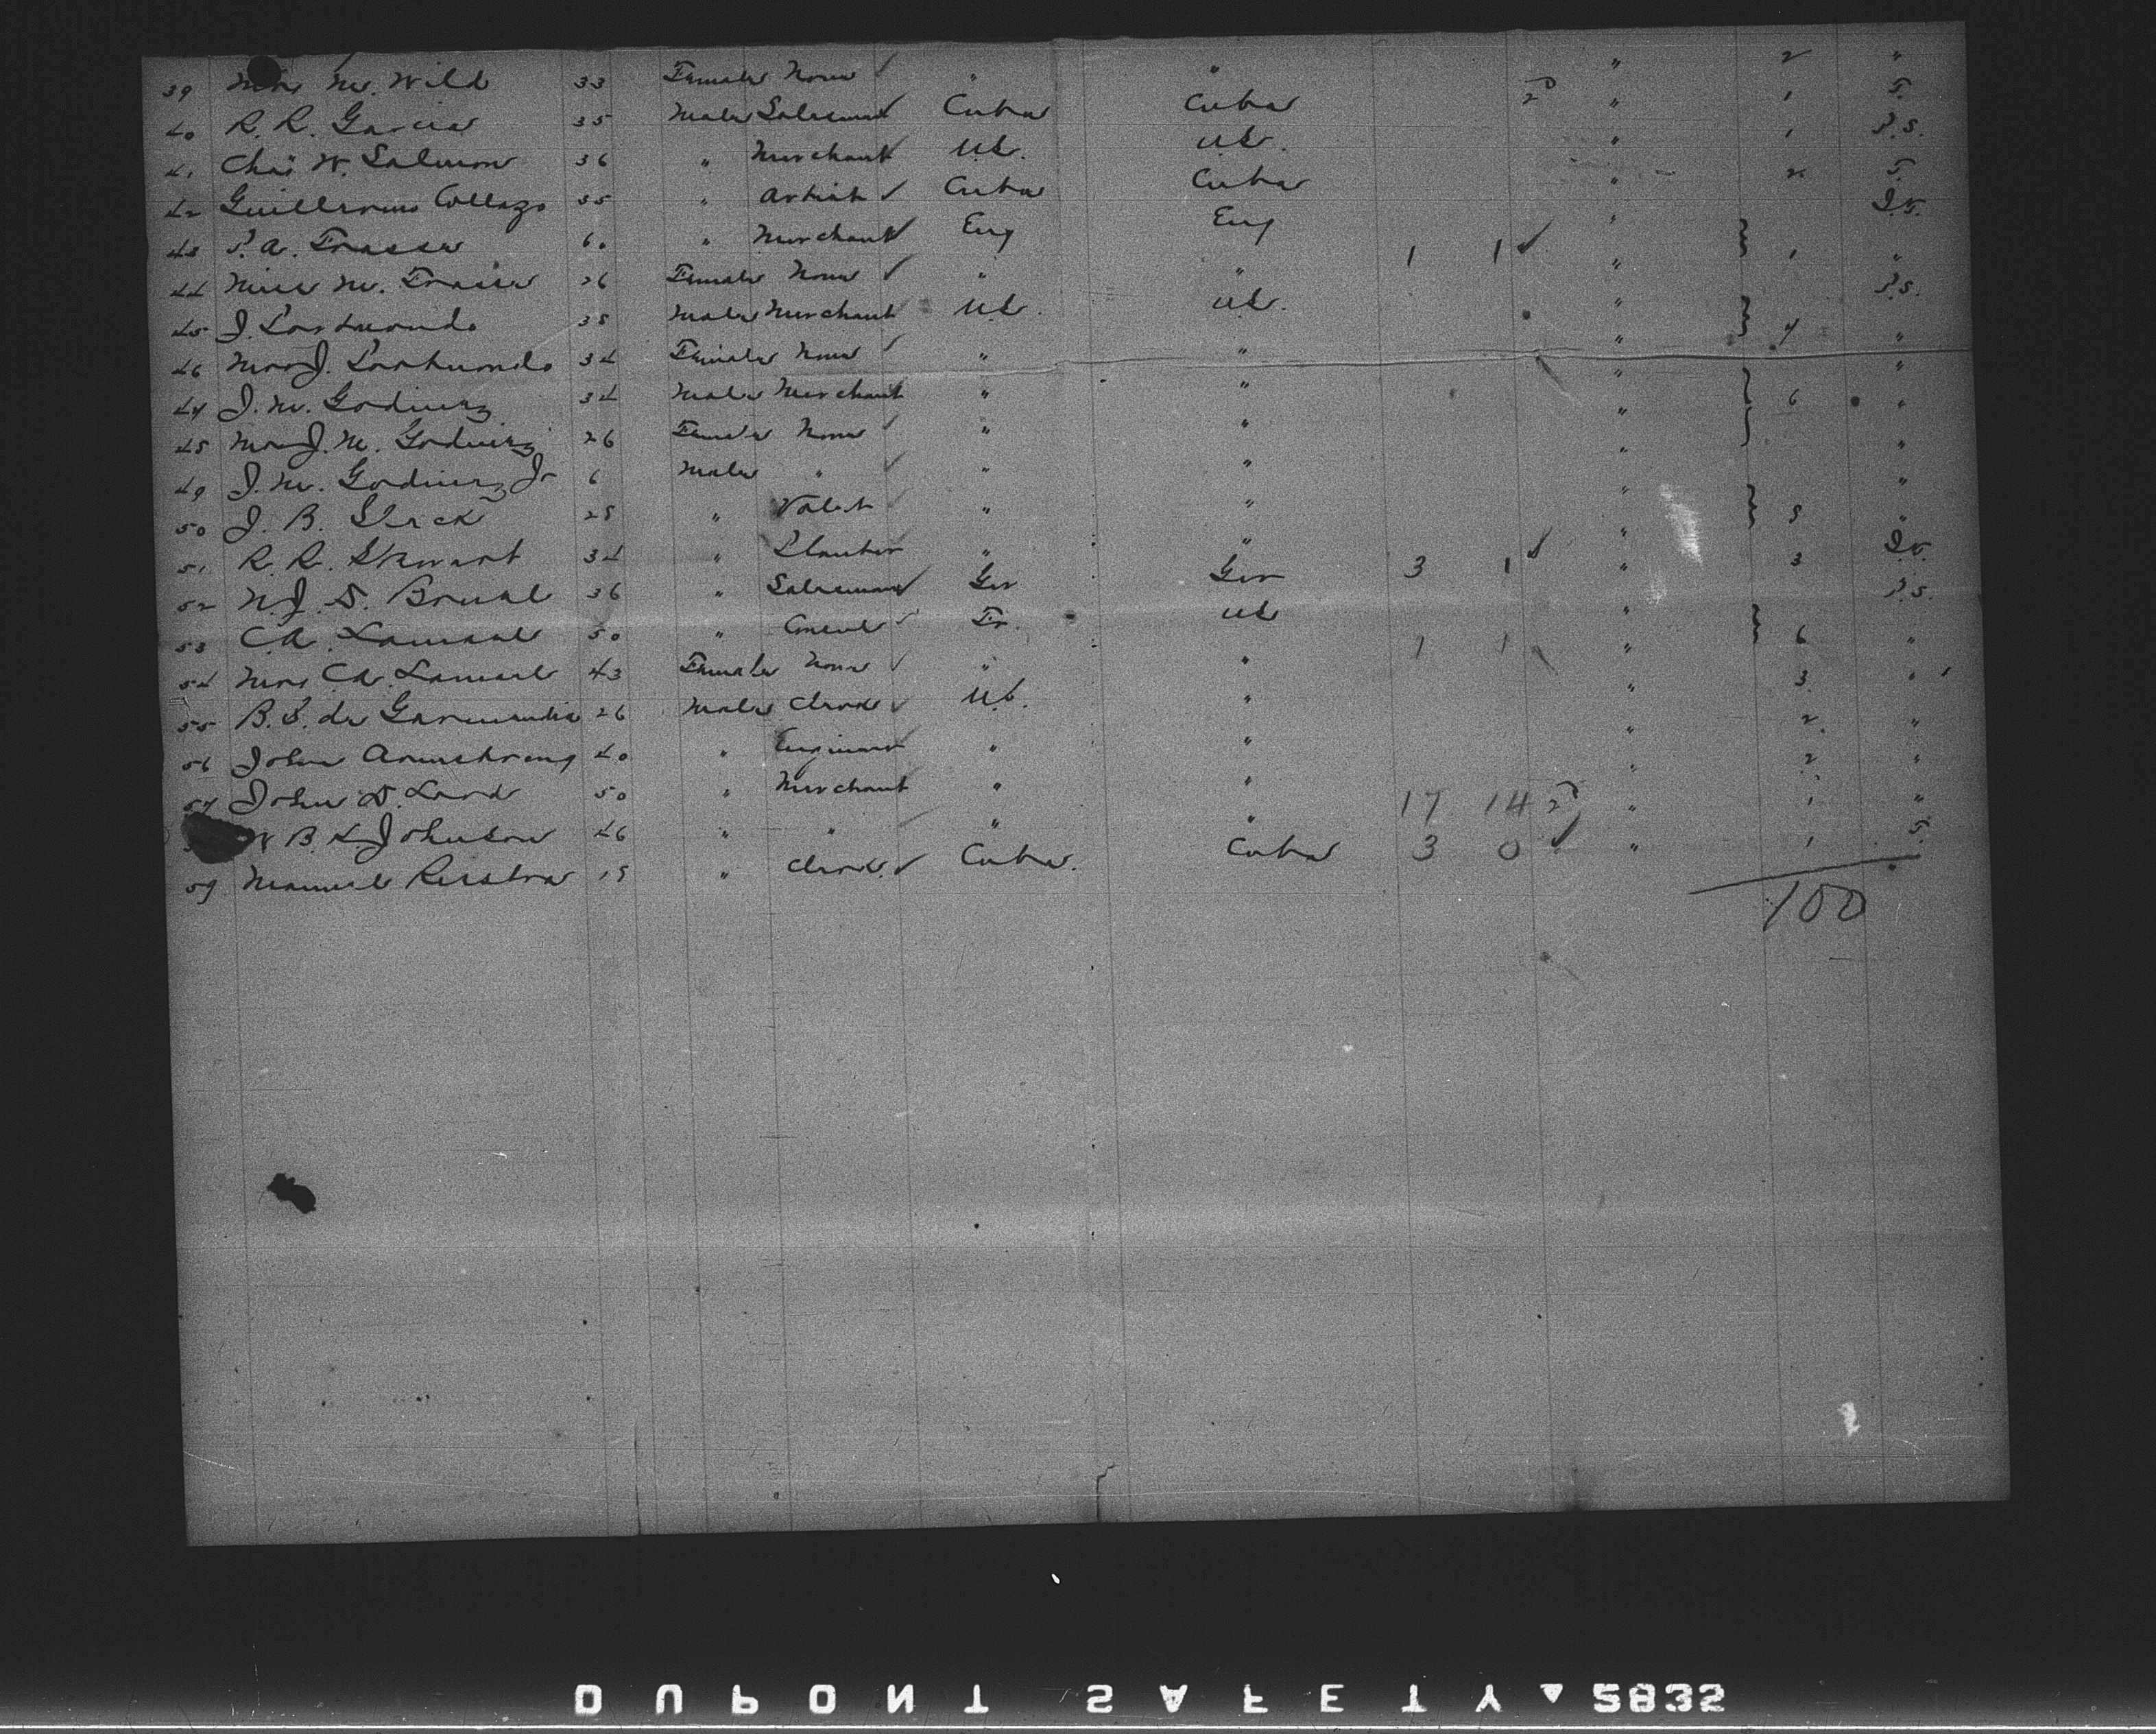 39 Mrs M. Wild 33 Female None " " " 2 "
40 R. R. Garcia 35 Male Salesman Cuba Cuba " 1 T.
41 Chas W. Salmon 36 " Merchant U.S. U.S. " 1 P.S.
42 Guillermo Collazo 35 " Artist Cuba Cuba " 2 T.
43 S. A. 60 " Merchant Eng Eng "
44 Miss M. 26 Female None " " 1 1 " 1 "
45 J. 38 Male Merchant U.S. U.S. " P.S.
46 Mrs J. 34 Female None " " " 4 "
47 J. M. Godinez 34 Male Merchant " " " "
48 Mrs J. M. Godinez 26 Female None " " " 6 "
49 J. M. Godinez Jr 6 Male " " " " "
50 J. B. 28 " Valet " " " "
51 R. R. Stewart 34 " Planter " " " "
52 N. J. D. 36 " Salesman Ger Ger 3 1 " 3
53 C. A. 50 " Consul Fr. US " P.S.
54 Mrs C. A. 43 Female None " " 1 1 " 6 "
55 B. S. de Garmendia 26 Male Clerk U.S. " " 3 "
56 John Armstrong 40 " Engineer " " " 2 "
57 John D. 50 " Merchant " " " 2 "
B. K. Johnson 46 " " " " 17 14 " 1 "
59 Manuel 18 " Clerk Cuba. Cuba 3 0 " 1 T.
100
DUPONT SAFETY 2835